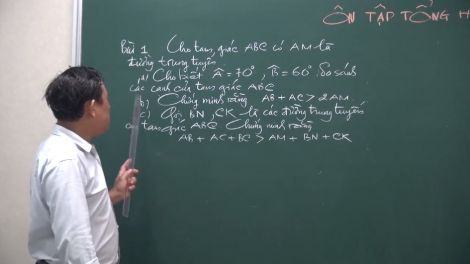 ÔN TẬP TỔNG H
Bài 1 Cho tam giác ABC có AM là
đường trung tuyến.
a) Cho biết Â = 70°, B̂ = 60°. So sánh
các cạnh của tam giác ABC
b) Chứng minh rằng AB + AC > 2AM
c) Gọi BN, CK là các đường trung tuyến
của tam giác ABC. Chứng minh rằng
AB + AC + BC > AM + BN + CK